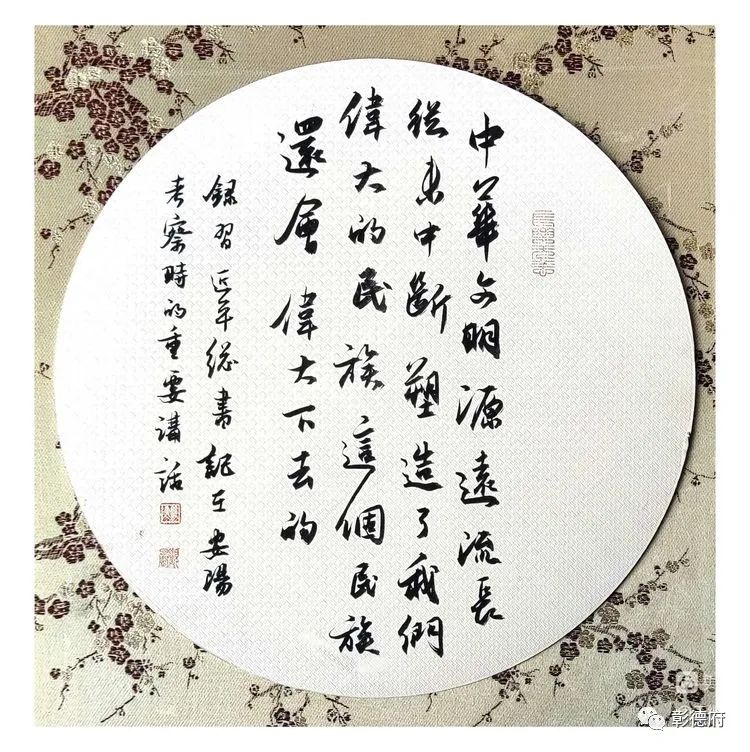 中華文明源遠流長
從未中斷塑造了我們
偉大的民族這個民族
還會偉大下去的
錄習近平總書記在安陽
考察時的重要講話
彰德府